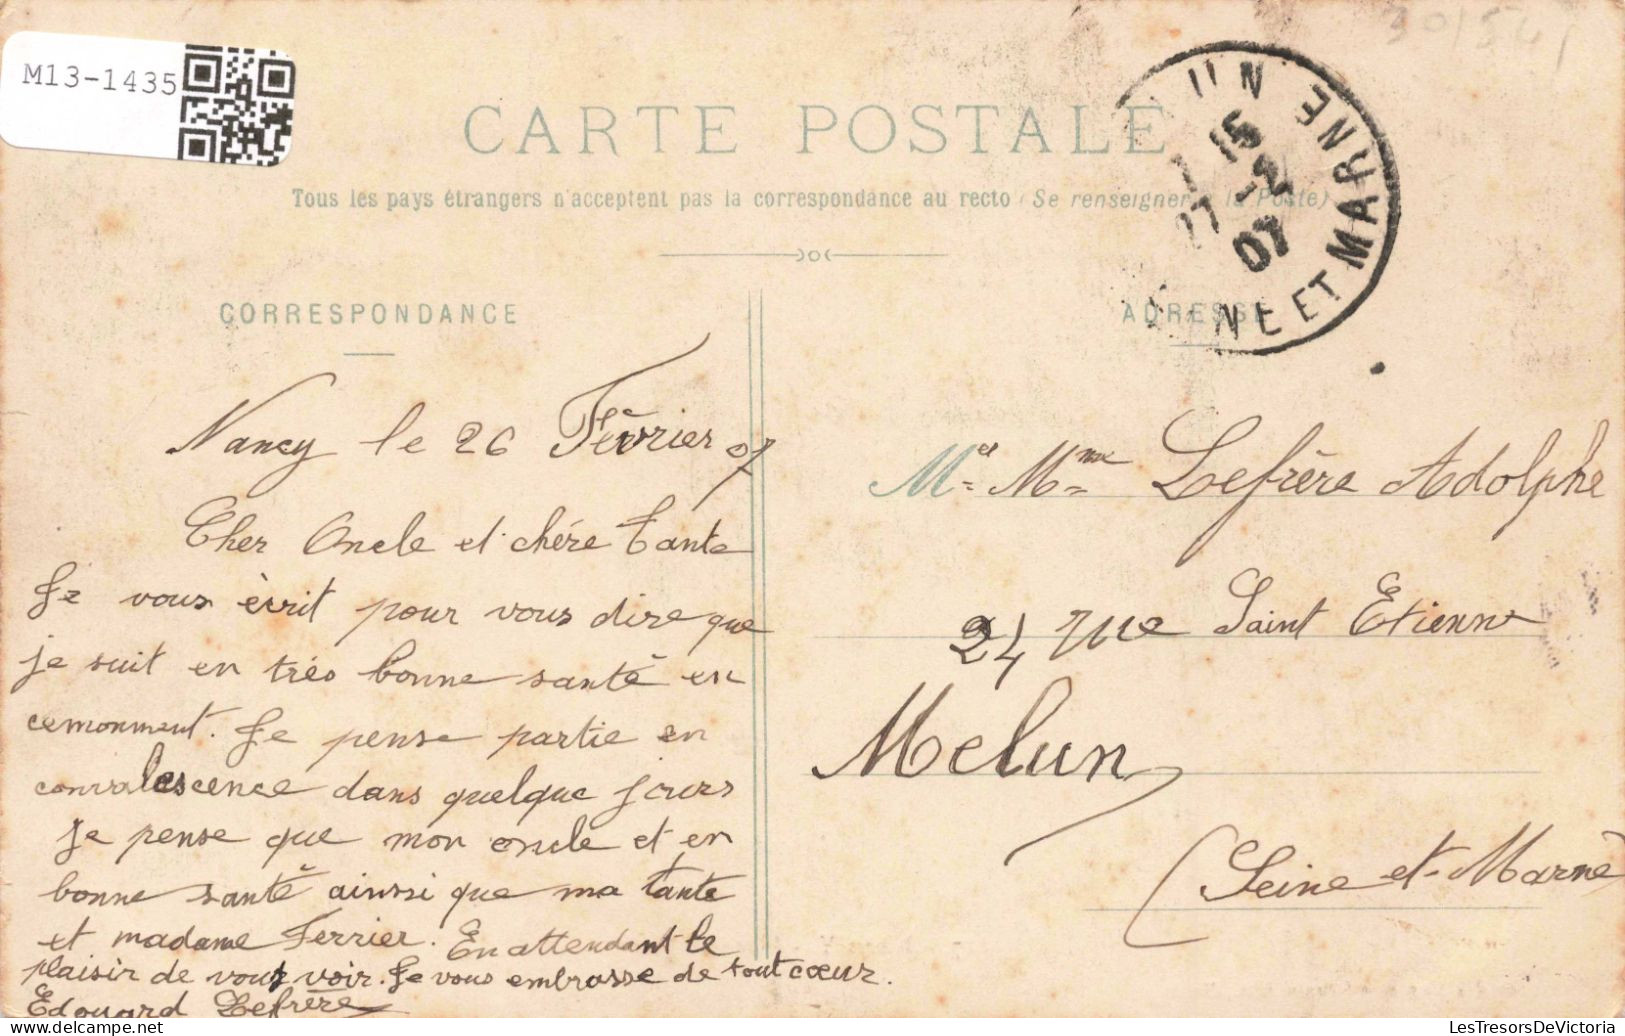 M13-1435
30/541
CARTE POSTALE
Tous les pays étrangers n'acceptent pas la correspondance au recto (Se renseigner à la Poste)
UN
NE ET MARNE
15
27 -2
07
CORRESPONDANCE
ADRESSE
Nancy le 26 Février 07
Cher Oncle et chére tante
Je vous ècrit pour vous dire que
je suit en très bonne santè en
cemonment. Je pense partie en
convalescence dans quelque jours
Je pense que mon oncle et en
bonne santè ainsi que ma tante
et madame Ferrier. En attendant le
plaisir de vous voir. Je vous embrasse de tout cœur.
Edouard Lefrère
Mr et Mme Lefrère Adolphe
24 rue Saint Etienne
Melun
(Seine-et-Marne
LesTresorsDeVictoria